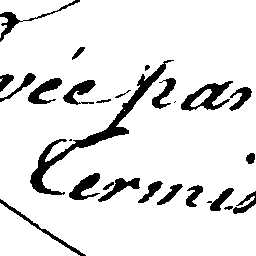 vée par
Termis